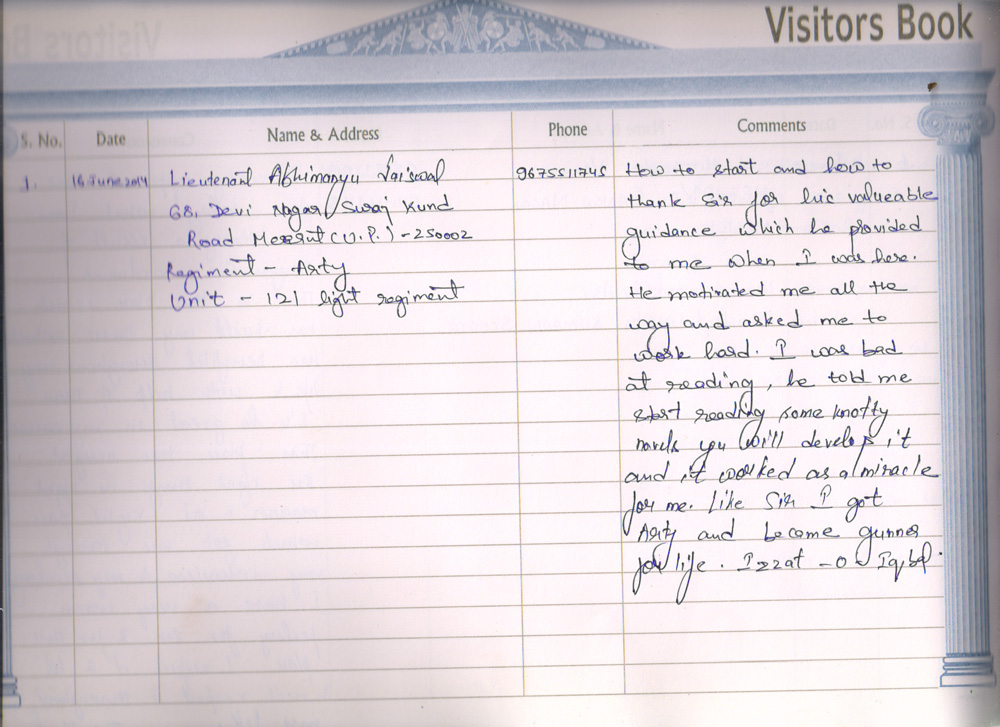 Visitors Book
S. No.
Date
Name & Address
Phone
Comments
1.
16 June 2014
Lieutenant Abhimanyu Jaiswal
68, Devi Nagar, Suraj Kund
Road Meerut (U.P.) - 250002
Regiment - Arty
Unit - 121 light regiment
9675511745
How to start and how to
thank Sir for his valueable
guidance which he provided
to me when I was here.
He motivated me all the
way and asked me to
work hard. I was bad
at reading, he told me
start reading some
novels you will develop it
and it worked as a miracle
for me. Like Sir I got
Arty and become gunner
for life. Izzat-o-Iqbal.